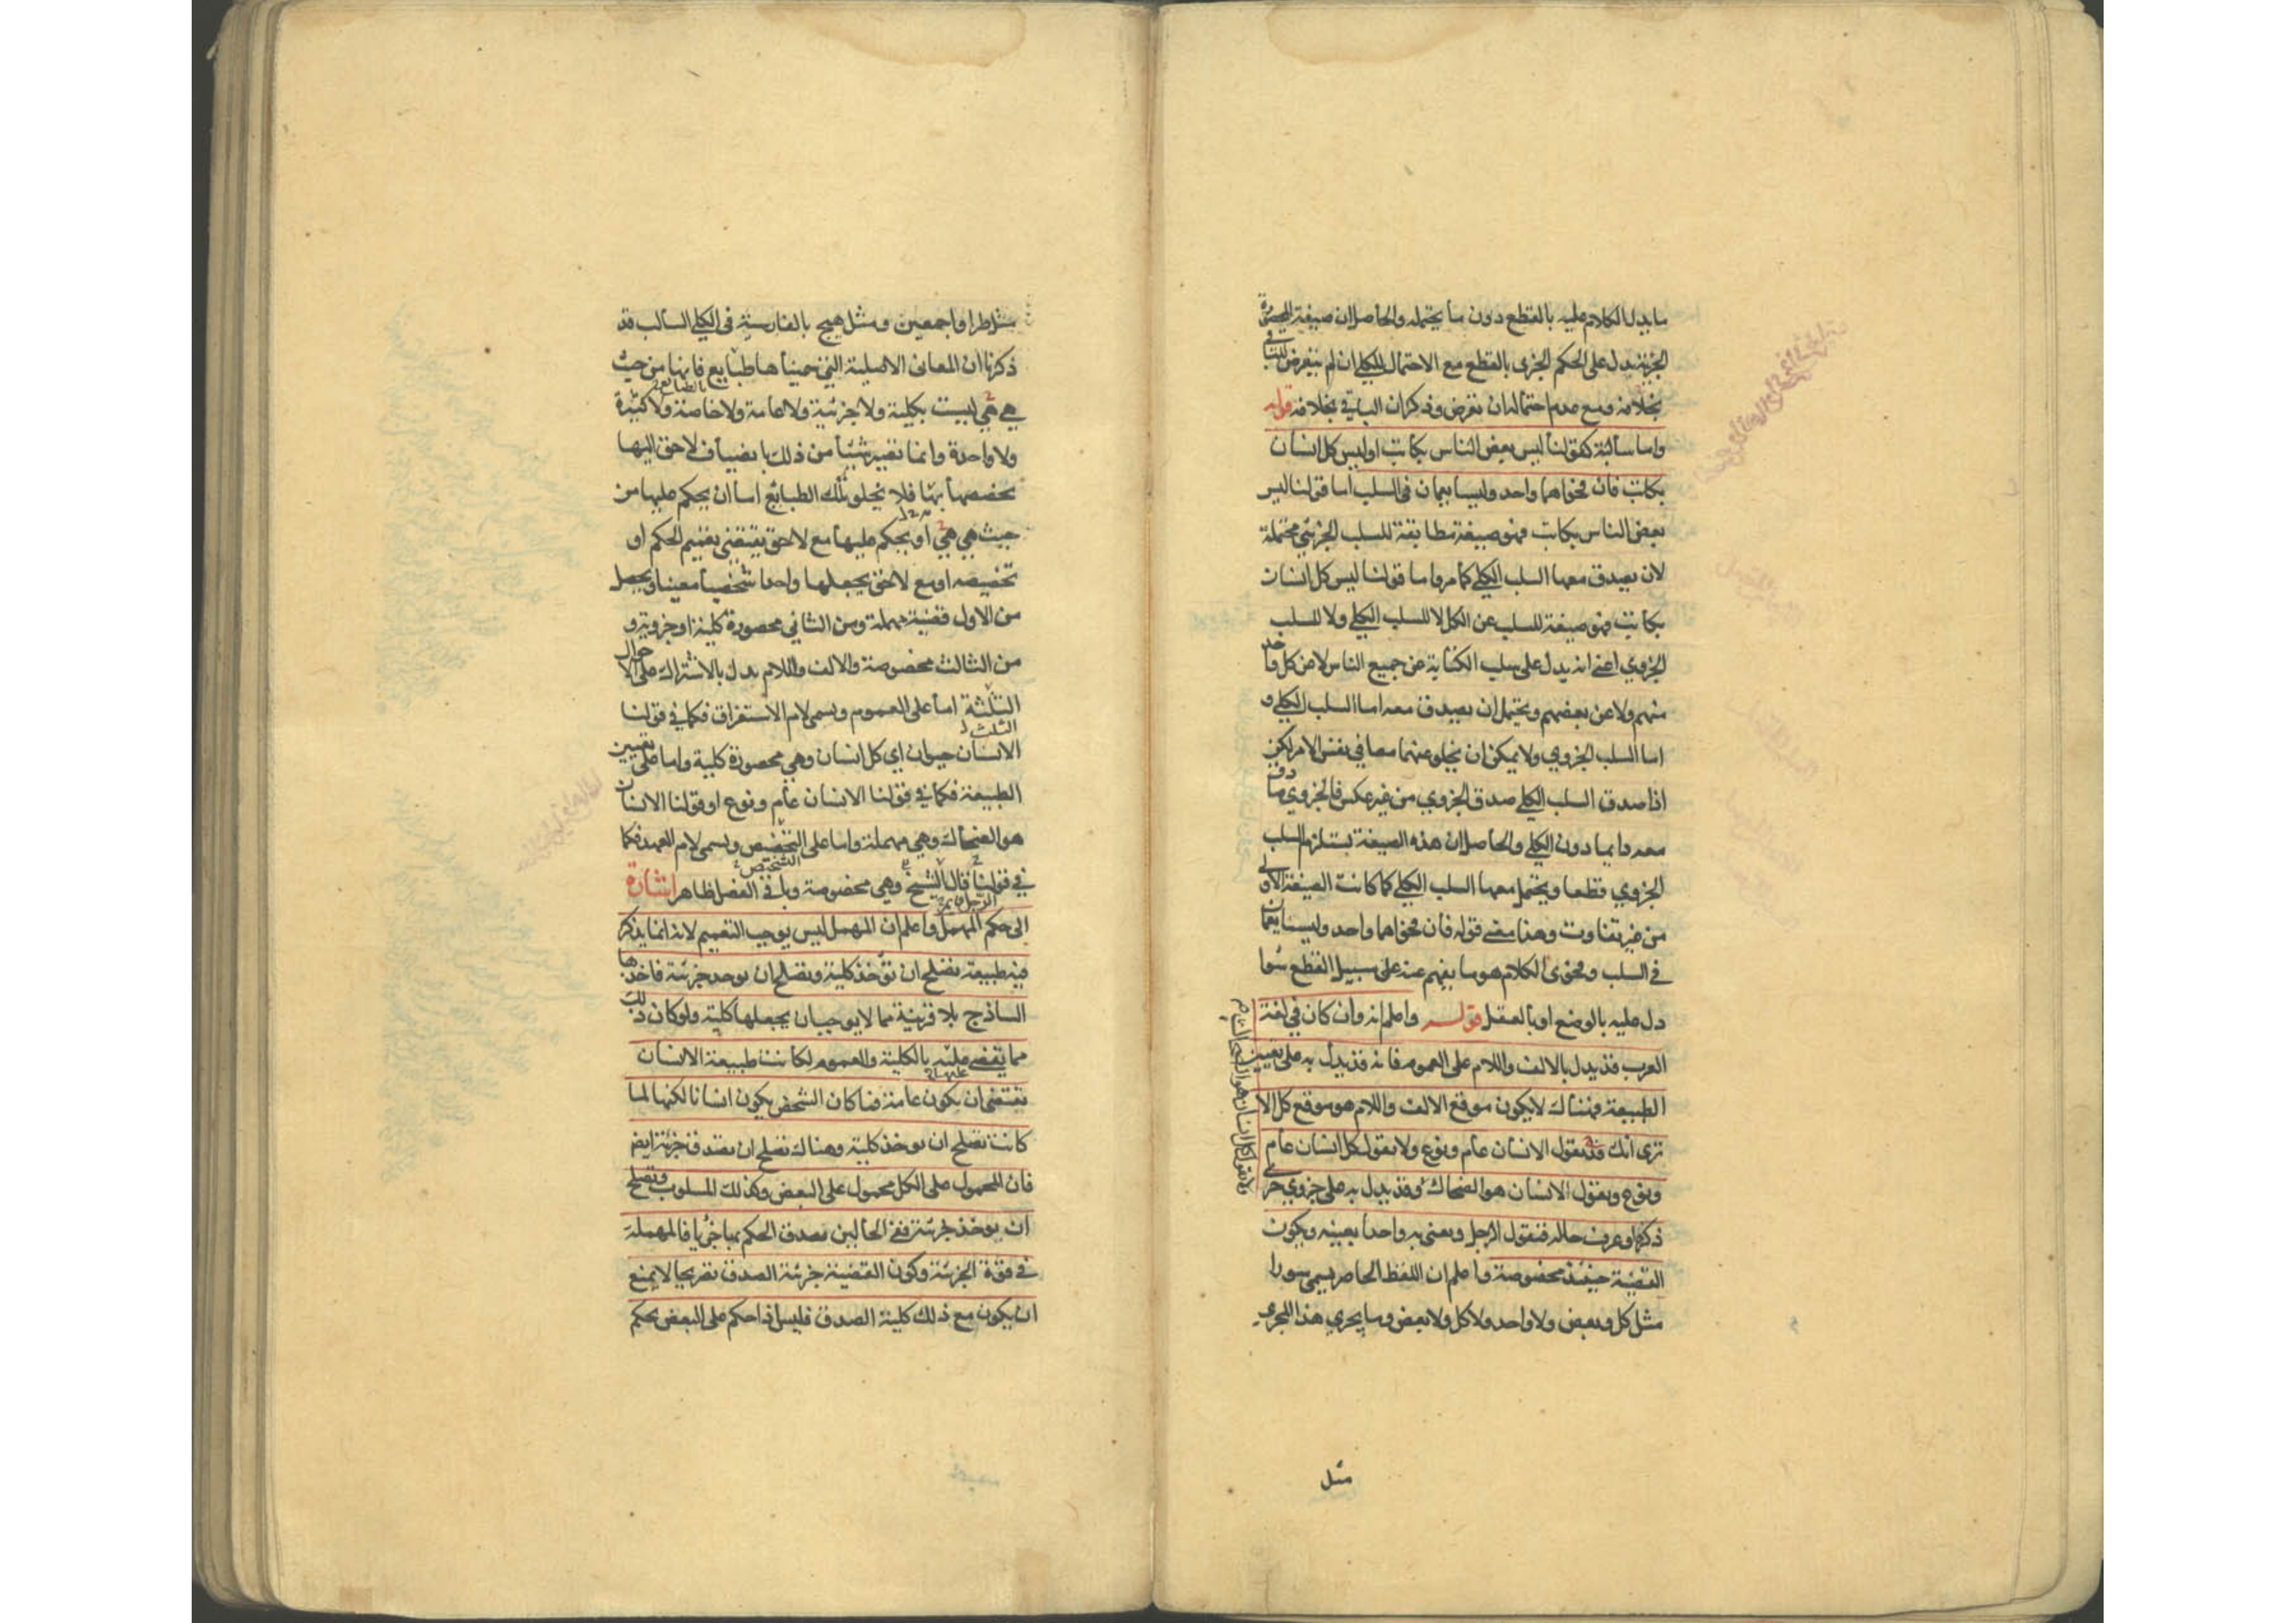 ما يدل الكلام عليه بالقطع دون ما يحتمله والحاصل ان صيغة المحصورة
الجزئية يدل على الحكم الجزى بالقطع مع الاحتمال للكلى ان لم يتعرض للباقى
بخلافه ومع عدم احتماله ان تعرض وذكر ان الباقى بخلافه قوله
واما سالبة كقولنا ليس بعض الناس بكاتب او ليس كل انسان
بكاتب فان فحواهما واحد وليسا يعمان فى السلب اما قولنا ليس
بعض الناس بكاتب فهو صيغة مطابقة للسلب الجزئى محتملة
لان يصدق معها السلب الكلى كما مر واما قولنا ليس كل انسان
بكاتب فهو صيغة للسلب عن الكل لا للسلب الكلى ولا للسلب
الجزوي اعنى انه يدل على سلب الكتابة عن جميع الناس لا عن كل واحد
منهم ولا عن بعضهم ويحتمل ان يصدق معه اما السلب الكلى و
اما السلب الجزوي ولا يمكن ان يخلو عنهما معا في نفس الامر لكن
اذا صدق السلب الكلى صدق الجزوي من غير عكس فالجزوي صادق
معه دايما دون الكلى والحاصل ان هذه الصيغة يستلزم السلب
الجزوي قطعا ويحتمل معها السلب الكلى كما كانت الصيغة الاولى
من غير تفاوت وهذا معنى قوله فان فحواهما واحد وليسا يعمان
فى السلب وفحوى الكلام هو ما يفهم عنه على سبيل القطع سوا
دل عليه بالوضع او بالعقل قوله واعلم انه وان كان في لغة
العرب قد يدل بالالف واللام على العموم فانه قد يدل به على تعيين
الطبيعة فهناك لا يكون موقع الالف واللام هو موقع كل الا
ترى انك قد تقول الانسان عام ونوع ولا تقول كل انسان عام
ونوع وتقول الانسان هو الضحاك وقد يدل به على جزوي جرى
ولا تقول كل انسان هو الضحاك
ذكره او عرف حاله فتقول الرجل وتعنى به واحدا بعينه ويكون
القضية حينئذ مخصوصة واعلم ان اللفظ الحاصر يسمى سورا
مثل كل وبعض ولا واحد ولا كل ولا بعض وما يجري هذا المجرى
مثل
مثل طرا واجمعين ومثل هيچ بالفارسية فى الكلى السالب قد
ذكرنا ان المعانى الاصلية التي سميناها طبايع فانها من حيث
هي هي ليست بكلية ولا جزئية ولا عامة ولا خاصة ولا كثيرة
ولا واحدة وانما تصير شيئا من ذلك بانضياف لاحق اليها
يخصصها بها فلا يخلو تلك الطبايع اما ان يحكم عليها من
حيث هي هي او يحكم عليها مع لاحق يقتضى تعميم الحكم او
تخصيصه او مع لاحق يجعلها واحدا شخصيا معينا ويحصل
من الاول قضية مهملة ومن الثاني محصورة كلية او جزوية و
من الثالث مخصوصة والالف واللام يدل بالاشتراك على الاحوال
الثلثة اما على العموم ويسمى لام الاستغراق فكما في قولنا
الانسان حيوان اي كل انسان وهي محصورة كلية واما على تعيين
الطبيعة فكما في قولنا الانسان عام ونوع او قولنا الانسان
هو الضحاك وهي مهملة واما على التخصيص ويسمى لام العهد فكما
في قولنا قال الشيخ وهي مخصوصة وباقى الفصل ظاهر اشارة
الى حكم المهمل واعلم ان المهمل ليس يوجب التعميم لانه انما يذكر
فيه طبيعة تصلح ان تؤخذ كلية وتصلح ان توخذ جزئية فاخذها
الساذج بلا قرينة مما لا يوجب ان يجعلها كلية ولو كان ذلك
مما يقضى عليه بالكلية والعموم لكانت طبيعة الانسان
تقتضى ان يكون عامة فما كان الشخص يكون انسانا لكنها لما
كانت تصلح ان توخذ كلية وهناك تصلح ان تصدق جزئية ايضا
فان المحمول على الكل محمول على البعض وكذلك المسلوب وتصلح
ان يوخذ جزئية ففى الحالين تصدق الحكم بها جزئيا فالمهملة
فى قوة الجزئية وكون القضية جزئية الصدق تصريحا لا يمنع
ان يكون مع ذلك كلية الصدق فليس اذا حكم على البعض بحكم